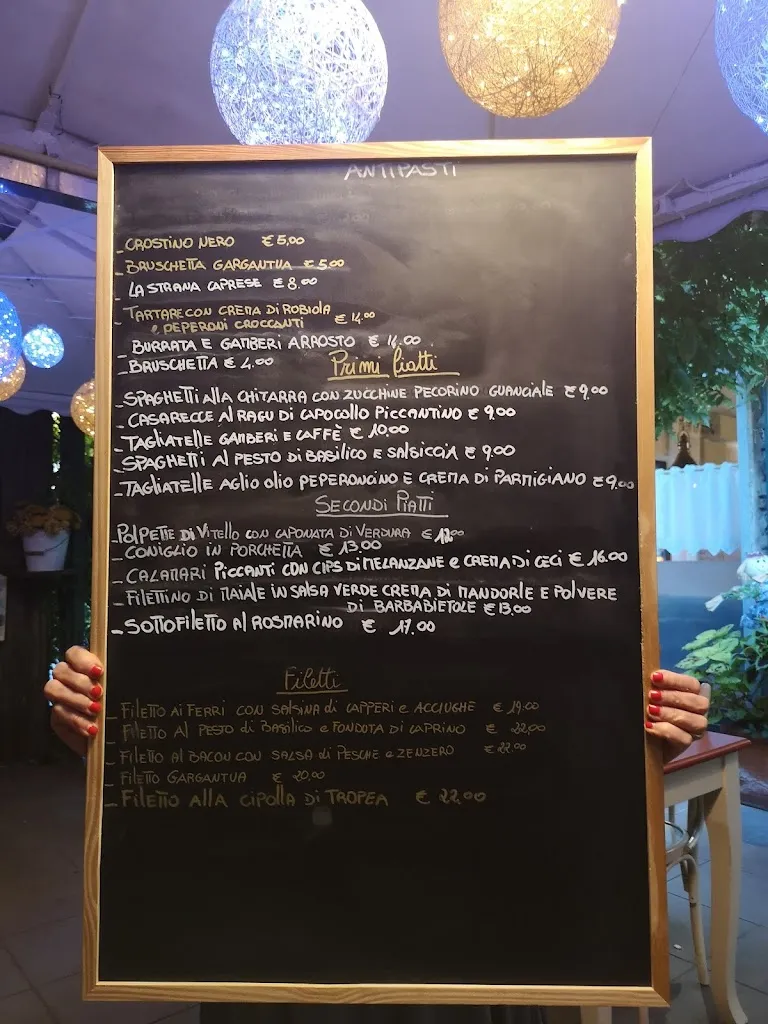 ANTIPASTI
- CROSTINO NERO € 5,00
- BRUSCHETTA GARGANTUA € 5,00
LA STRANA CAPRESE € 8.00
- TARTARE CON CREMA DI ROBIOLA
e PEPERONI CROCCANTI € 14.00
- BURRATA E GAMBERI ARROSTO €
- BRUSCHETTA € 4.00
Primi Piatti
- SPAGHETTI ALLA CHITARRA CON ZUCCHINE PECORINO GUANCIALE € 9,00
- CASARECCE AL RAGU DI CAPOCOLLO PICCANTINO € 9,00
- TAGLIATELLE GAMBERI E CAFFÈ € 10.00
- SPAGHETTI AL PESTO DI BASILICO E SALSICCIA € 9,00
- TAGLIATELLE AGLIO OLIO PEPERONCINO E CREMA DI PARMIGIANO € 9,00
SECONDI PIATTI
- POLPETTE DI VITELLO CON CAPONATA DI VERDURA €
- CONIGLIO IN PORCHETTA € 13.00
- CALAMARI PICCANTI CON CIPS DI MELANZANE e CREMA DI CECI € 16.00
- FILETTINO DI MAIALE IN SALSA VERDE CREMA DI MANDORLE E POLVERE
DI BARBABIETOLE € 13.00
- SOTTOFILETTO AL ROSMARINO € 17.00
Filetti
- FILETTO AI FERRI CON SALSINA di CAPPERI e ACCIUGHE € 19.00
- FILETTO AL PESTO di BASILICO e FONDUTA DI CAPRINO € 22,00
- FILETTO AL BACON CON SALSA di PESCHE e ZENZERO € 22.00
- FILETTO GARGANTUA € 20,00
- FILETTO ALLA CIPOLLA DI TROPEA € 22.00